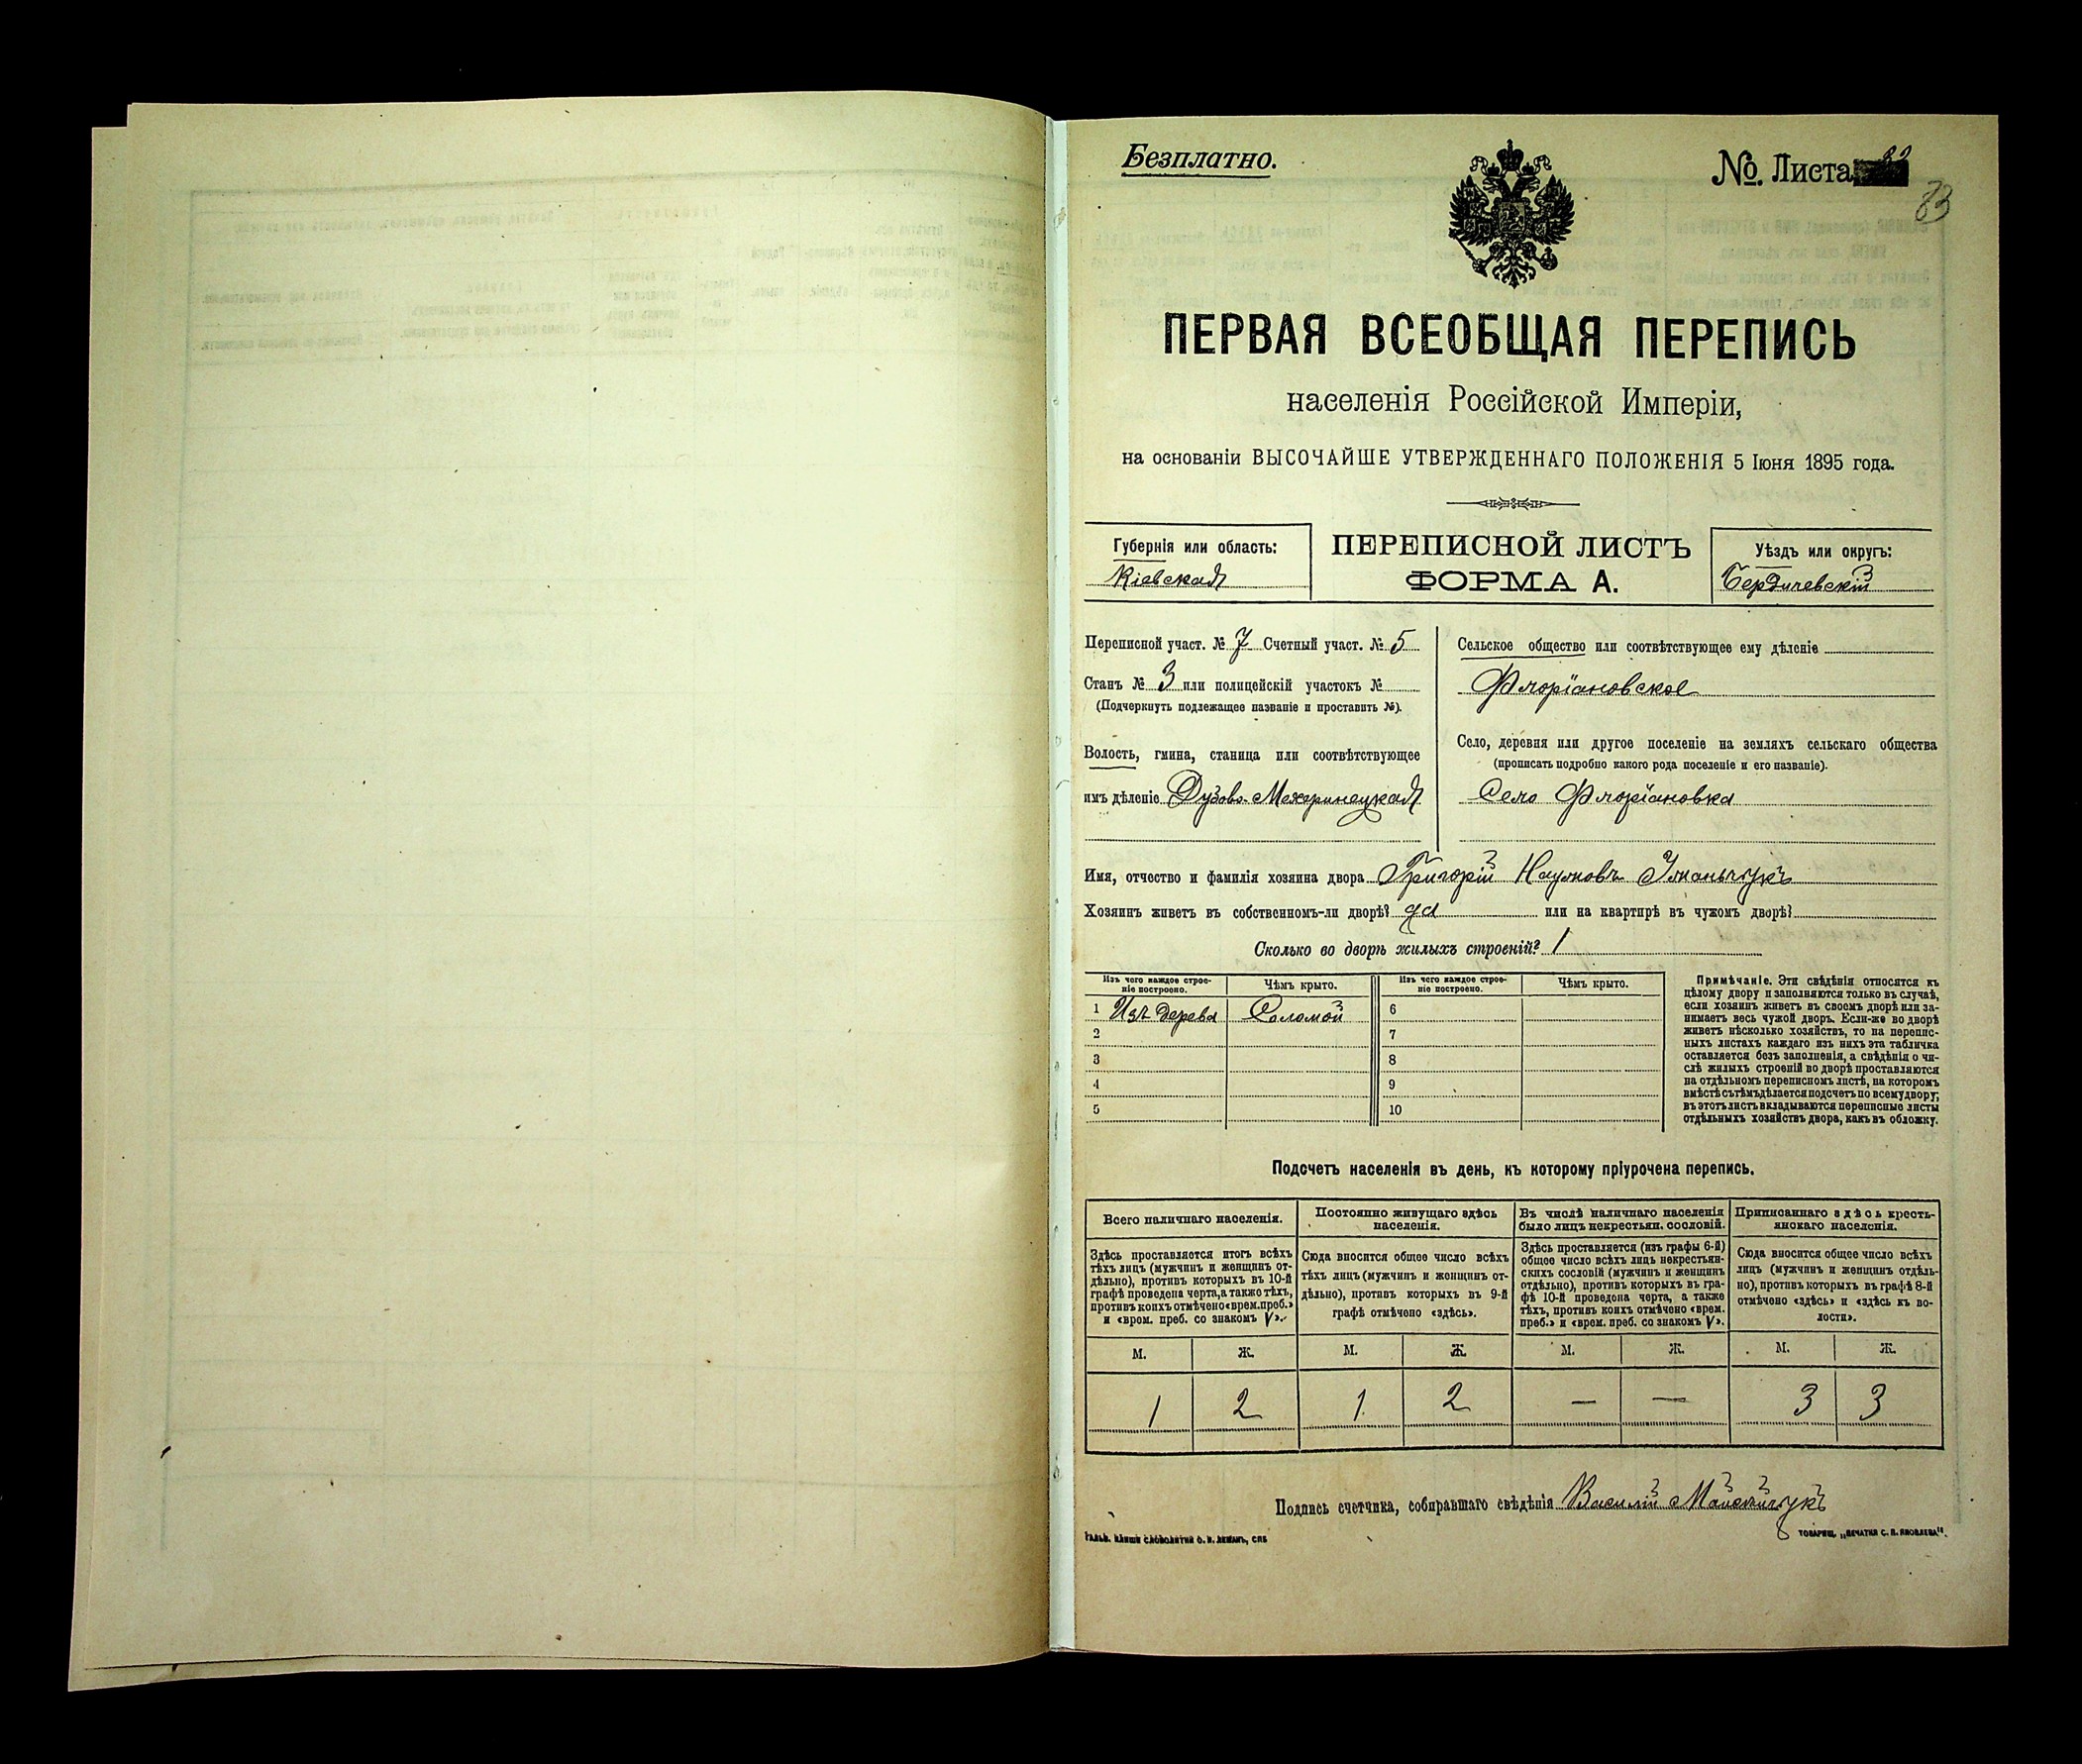 Безплатно.
№. Листа
83
ПЕРВАЯ ВСЕОБЩАЯ ПЕРЕПИСЬ
населенія Россійской Имперіи,
на основаніи ВЫСОЧАЙШЕ УТВЕРЖДЕННАГО ПОЛОЖЕНІЯ 5 Іюня 1895 года.
Губернія или область:
Кіевская
ПЕРЕПИСНОЙ ЛИСТЪ
ФОРМА А.
Уѣздъ или округъ:
Бердичевскій
Переписной участ. № 7 Счетный участ. № 5
Станъ № 3 или полицейскій участокъ №
(Подчеркнуть подлежащее названіе и проставить №).
Волость, гмина, станица или соотвѣтствующее
имъ дѣленіе
Сельское общество или соотвѣтствующее ему дѣленіе
Флоріановское
Село, деревня или другое поселеніе на земляхъ сельскаго общества
(прописать подробно какого рода поселеніе и его названіе).
Село Флоріановка
Имя, отчество и фамилія хозяина двора Григорій Наумовъ
Хозяинъ живетъ въ собственномъ-ли дворѣ? да или на квартирѣ въ чужомъ дворѣ?
Сколько во дворѣ жилыхъ строеній? 1
Изъ чего каждое строе-
ніе построено.
Чѣмъ крыто.
Изъ чего каждое строе-
ніе построено.
Чѣмъ крыто.
1 Изъ дерева Соломой 6
2 7
3 8
4 9
5 10
Примѣчаніе. Эти свѣдѣнія относятся къ
цѣлому двору и заполняются только въ случаѣ,
если хозяинъ живетъ въ своемъ дворѣ или за-
нимаетъ весь чужой дворъ. Если-же во дворѣ
живетъ нѣсколько хозяйствъ, то на перепис-
ныхъ листахъ каждаго изъ нихъ эта табличка
оставляется безъ заполненія, а свѣдѣнія о чи-
слѣ жилыхъ строеній во дворѣ проставляются
на отдѣльномъ переписномъ листѣ, на которомъ
вмѣстѣ съ тѣмъ дѣлается подсчетъ по всему двору;
въ этотъ листъ вкладываются переписные листы
отдѣльныхъ хозяйствъ двора, какъ въ обложку.
Подсчетъ населенія въ день, къ которому пріурочена перепись.
Всего наличнаго населенія.
Здѣсь проставляется итогъ всѣхъ
тѣхъ лицъ (мужчинъ и женщинъ от-
дѣльно), противъ которыхъ въ 10-й
графѣ проведена черта, а также тѣхъ,
противъ коихъ отмѣчено «врем. преб.»
и «врем. преб. со знакомъ V».
Постоянно живущаго здѣсь
населенія.
Сюда вносится общее число всѣхъ
тѣхъ лицъ (мужчинъ и женщинъ от-
дѣльно), противъ которыхъ въ 9-й
графѣ отмѣчено «здѣсь».
Въ числѣ наличнаго населенія
было лицъ некрестьян. сословій.
Здѣсь проставляется (изъ графы 6-й)
общее число всѣхъ лицъ некрестьян-
скихъ сословій (мужчинъ и женщинъ
отдѣльно), противъ которыхъ въ гра-
фѣ 10-й проведена черта, а также
тѣхъ, противъ коихъ отмѣчено «врем.
преб.» и «врем. преб. со знакомъ V».
Приписаннаго здѣсь кресть-
янскаго населенія.
Сюда вносится общее число всѣхъ
лицъ (мужчинъ и женщинъ отдѣль-
но), противъ которыхъ въ графѣ 8-й
отмѣчено «здѣсь» и «здѣсь къ во-
лости».
М. Ж. М. Ж. М. Ж. М. Ж.
1 2 1 2 — — 3 3
Подпись счетчика, собиравшаго свѣдѣнія Василій
ГАЛЬВ. КЛИШЕ СЛОВОЛИТНИ О. И. ЛЕМАНЪ, СПБ
ТОВАРИЩ. „ПЕЧАТНЯ С. П. ЯКОВЛЕВА".